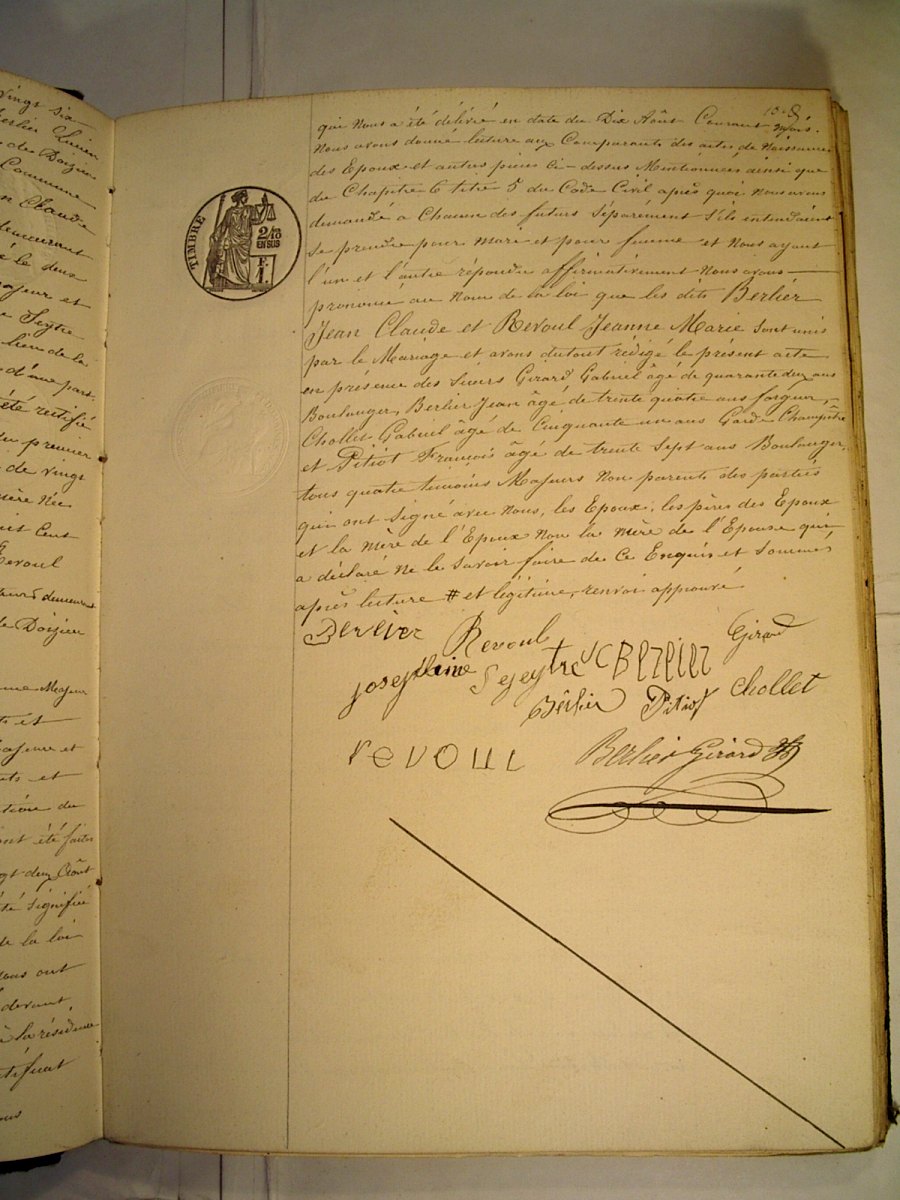 vingt six
Berlier
de Doizieu
Commune
Claude
demeurant
le deux
majeur et
Seytre
lieu de la
d'une part
été rectifié
premier
de vingt
mère Née
Cent
Revoul
demeurant
de Doizieu
Majeur
et
Majeure et
et
du
ont été faites
vingt deux Août
été signifié
de la loi
ont
devant
à la résidence
10.8
qui Nous a été délivré en date du Dix Août Courant mois.
Nous avons donné lecture aux Comparants des actes de Naissances
des Epoux et autres pièces Ci-dessus Mentionnées ainsi que
du Chapitre 6 titre 5 du Code Civil après quoi Nous avons
demandé à Chacun des futurs Séparément S'ils entendaient
Se prendre pour mari et pour femme et Nous ayant
l'un et l'autre répondu affirmativement Nous avons
prononcé au Nom de la loi que les dits Berlier
Jean Claude et Revoul Jeanne Marie Sont unis
par le Mariage et avons du tout rédigé le présent acte
en présence des Sieurs Girard Gabriel âgé de quarante deux ans
Boulanger, Berlier Jean âgé de trente quatre ans forgeur,
Chollet Gabriel âgé de Cinquante un ans Garde Champêtre
et Pitiot François âgé de trente Sept ans Boulanger
tous quatre témoins Majeurs Non parents des parties
qui ont Signé avec Nous, les Epoux, les pères des Epoux
et la mère de l'Epoux Non la mère de l'Epouse qui
a déclaré Ne le Savoir faire de Ce Enquis et Sommés
après lecture # et légitime, renvoi approuvé
TIMBRE
2/10
EN SUS
F.
1.
Berlier Revoul Girard
josephine Sejeytre JC Berlier
Bêrlier Pitiot Chollet
revoul Berlier Girard